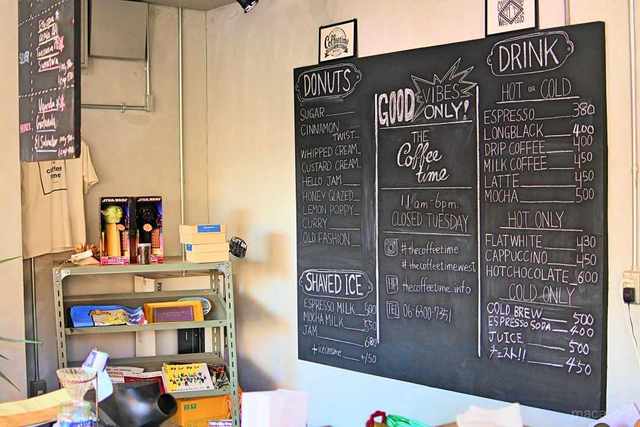 DONUTS
SUGAR
CINNAMON
TWIST
WHIPPED CREAM
CUSTARD CREAM
HELLO JAM
HONEY GLAZED
LEMON POPPY
CURRY
OLD FASHION
SHAVED ICE
ESPRESSO MILK 500
MOCHA MILK 550
JAM 680
+ icecreame +150
GOOD VIBES ONLY!
THE
Coffee
time
11am-6pm
CLOSED TUESDAY
#thecoffeetime
#thecoffeetimewest
thecoffeetime.info
TEL 06 6300-7351
DRINK
HOT OR COLD
ESPRESSO 380
LONGBLACK 400
DRIP COFFEE 400
MILK COFFEE 450
LATTE 450
MOCHA 500
HOT ONLY
FLAT WHITE 430
CAPPUCCINO 450
HOT CHOCOLATE 600
COLD ONLY
COLD BREW 500
ESPRESSO SODA 400
JUICE 500
チェスト!! 450
STAR WARS
STAR WARS
coffee
time
Coffeetime